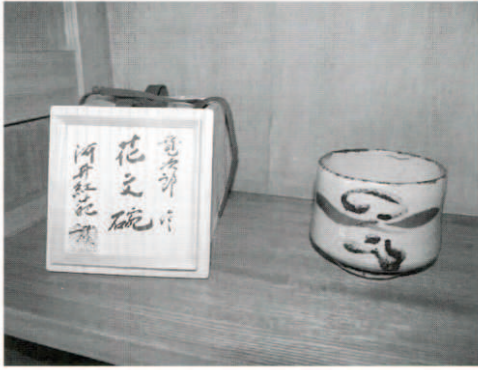 寛次郎 作
花文碗
河井紅葩 識